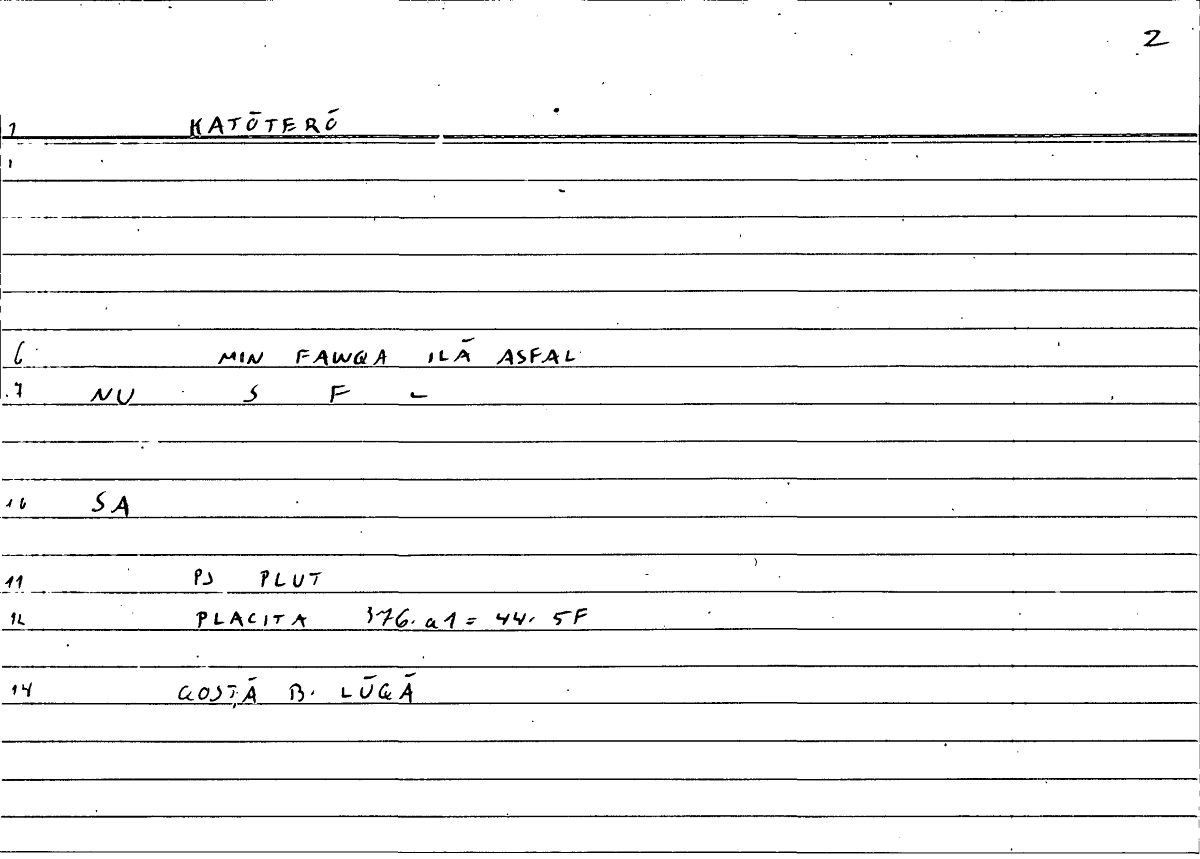 2
1 KATŌTERŌ
1
6 MIN FAWQA ILĀ ASFAL
7 NU S F -
10 SA
11 PS PLUT
12 PLACITA 376.a1 = 44. 5F
14 QOSṬĀ B. LŪQĀ